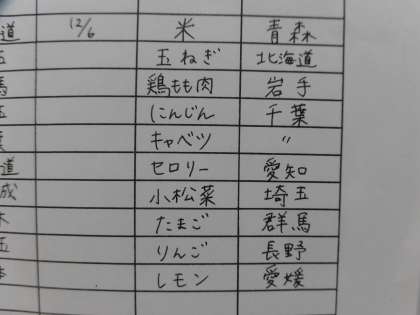 道 12/6 米 青森
玉ねぎ 北海道
馬 鶏もも肉 岩手
玉 にんじん 千葉
葉 キャベツ 〃
道 セロリー 愛知
城 小松菜 埼玉
木 たまご 群馬
玉 りんご 長野
レモン 愛媛